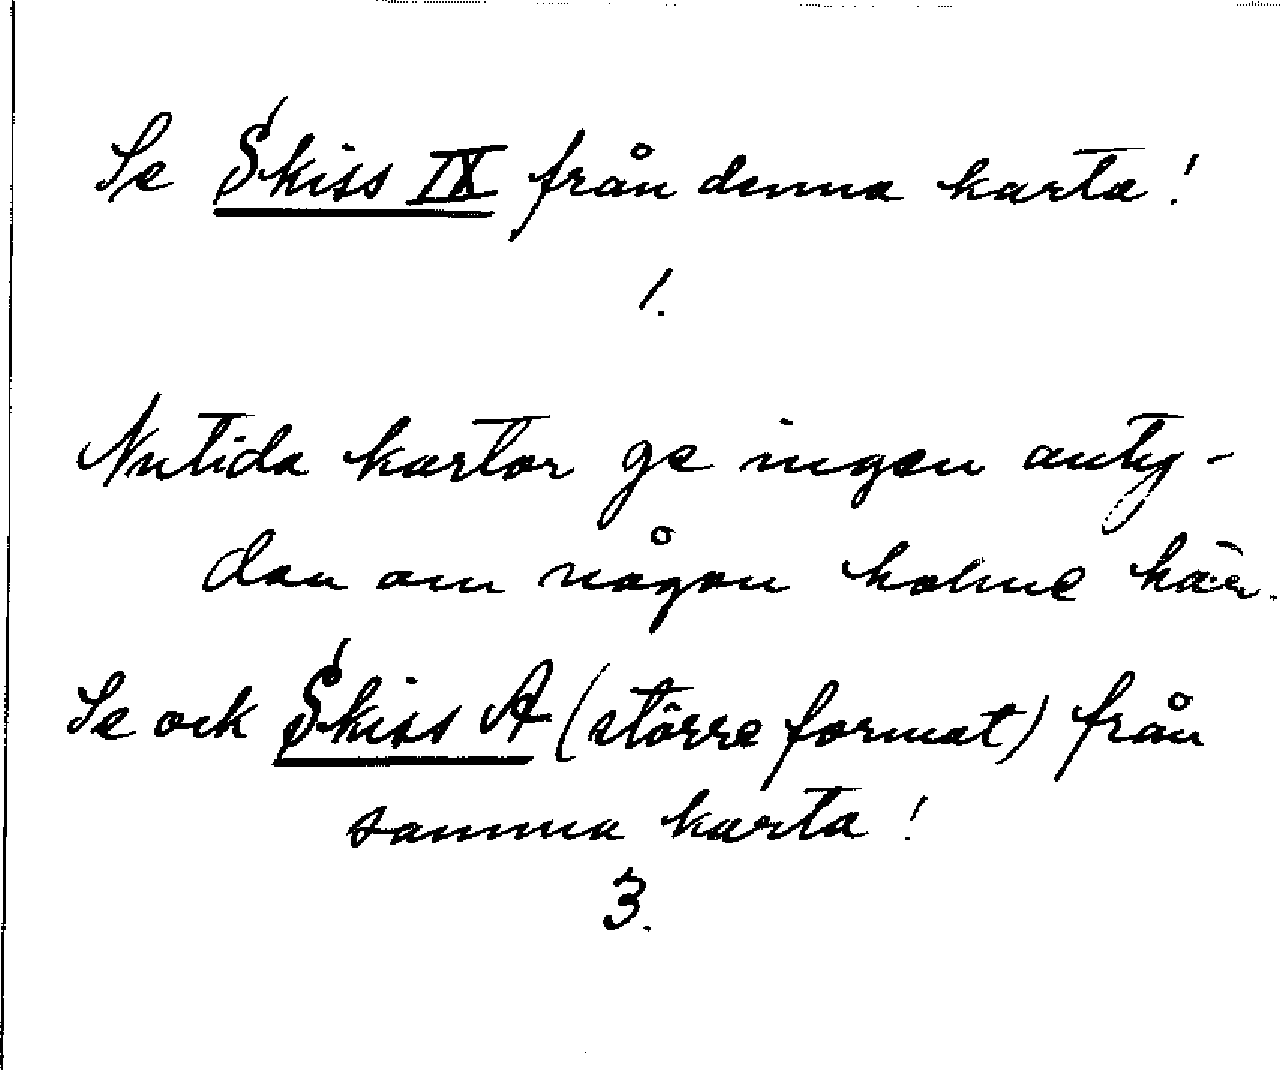 Se Skiss IX från denna karta!
1.
Nutida kartor ge ingen anty-
dan om någon holme här.
Se ock Skiss A (större format) från
samma karta!
3.